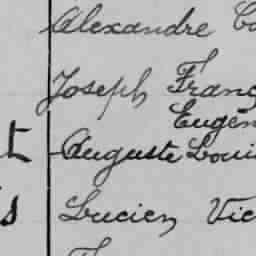 Alexandre
Joseph Franç
Eugèn
t Auguste Loui
s Lucien Vic